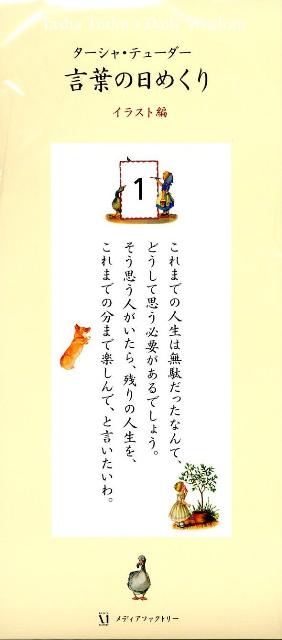 Tasha Tudor's Daily Wisdom
ターシャ・テューダー
言葉の日めくり
イラスト編
1
これまでの人生は無駄だったなんて、
どうして思う必要があるでしょう。
そう思う人がいたら、残りの人生を、
これまでの分まで楽しんで、と言いたいわ。
メディアファクトリー